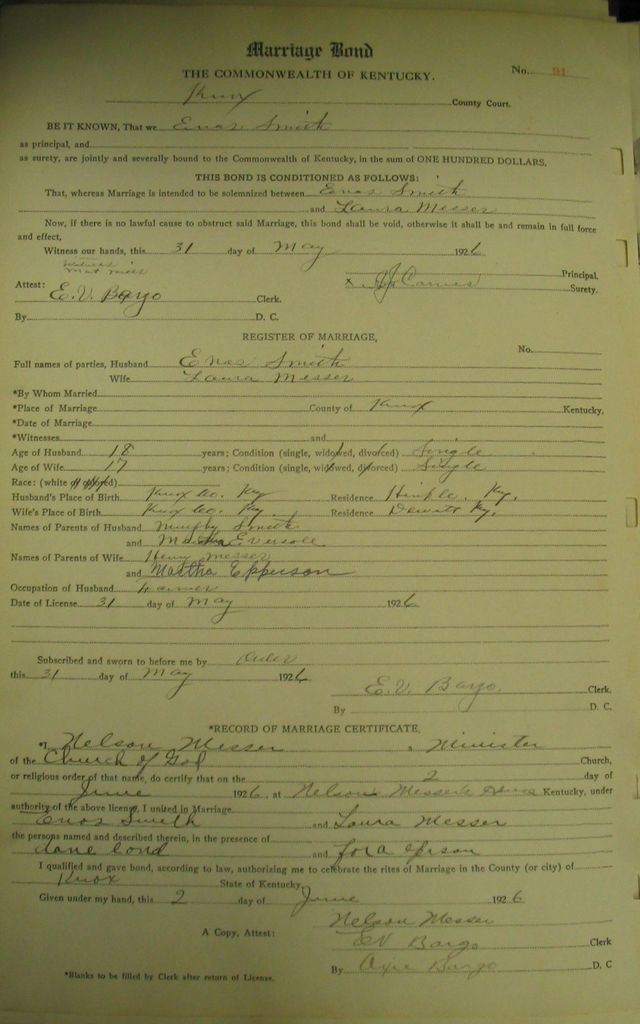 Marriage Bond
THE COMMONWEALTH OF KENTUCKY.
No. 91
Knox County Court.
BE IT KNOWN, That we Enos Smith
as principal, and
as surety, are jointly and severally bound to the Commonwealth of Kentucky, in the sum of ONE HUNDRED DOLLARS.
THIS BOND IS CONDITIONED AS FOLLOWS:
That, whereas Marriage is intended to be solemnized between Enos Smith
and Laura Messer
Now, if there is no lawful cause to obstruct said Marriage, this bond shall be void, otherwise it shall be and remain in full force
and effect,
Witness our hands, this 31 day of May 1926
Witness
Principal,
x Surety.
Attest: E.V. Bargo Clerk.
By D. C.
REGISTER OF MARRIAGE,
No.
Full names of parties, Husband Enos Smith
Wife Laura Messer
*By Whom Married
*Place of Marriage County of Knox Kentucky,
*Date of Marriage
*Witnesses and
Age of Husband 18 years; Condition (single, widowed, divorced) Single
Age of Wife 17 years; Condition (single, widowed, divorced) Single
Race: (white
Husband's Place of Birth Knox Co. Ky Residence Hinkle, Ky.
Wife's Place of Birth Knox Co. Ky. Residence Dewitt Ky.
Names of Parents of Husband Smith
and Eversole
Names of Parents of Wife Henry Messer
and Martha Epperson
Occupation of Husband Farmer
Date of License 31 day of May 1926
Subscribed and sworn to before me by
this 31 day of May 1926
E.V. Bargo. Clerk.
By D. C.
*RECORD OF MARRIAGE CERTIFICATE,
*I, Nelson Messer a Minister
of the Church of God Church,
or religious order of that name, do certify that on the 2 day of
June 1926, at Nelson Messer's Kentucky, under
authority of the above license, I united in Marriage
Enos Smith and Laura Messer
the persons named and described therein, in the presence of
and
I qualified and gave bond, according to law, authorizing me to celebrate the rites of Marriage in the County (or city) of
Knox State of Kentucky,
Given under my hand, this 2 day of June 1926
Nelson Messer
A Copy, Attest: EV Bargo Clerk
By Bargo D. C
*Blanks to be filled by Clerk after return of License.